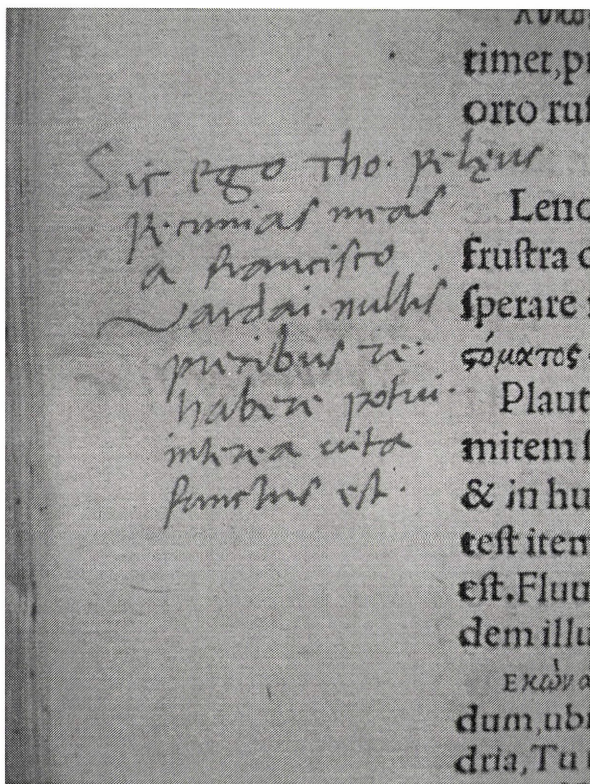 Sic ego Tho. pelęus
pecunias meas
a francisco
Vardai. nullis
precibus re:
habere potui.
interea vita
functus est.
timet,pr
orto ruf
Leno
frustra
sperare
ςόματος
Plaut
mitem
& in hu
test item
est.Fluu
dem illu
ἑκὼν α
dum,ubi
dria,Tu